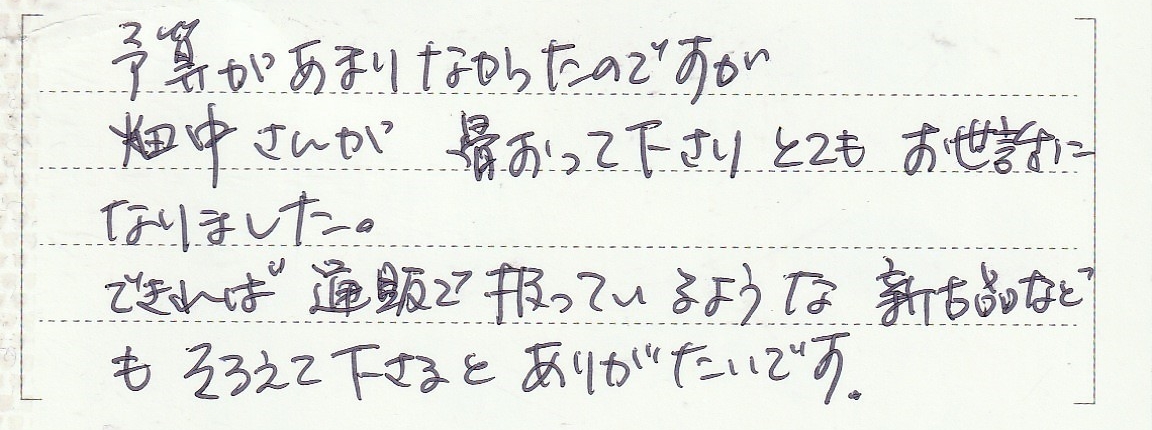 予算があまりなかったのですが
畑中さんが 骨おって下さり とても お世話に
なりました。
できれば 通販で扱っているような 新古品など
も そろえて下さると ありがたいです。